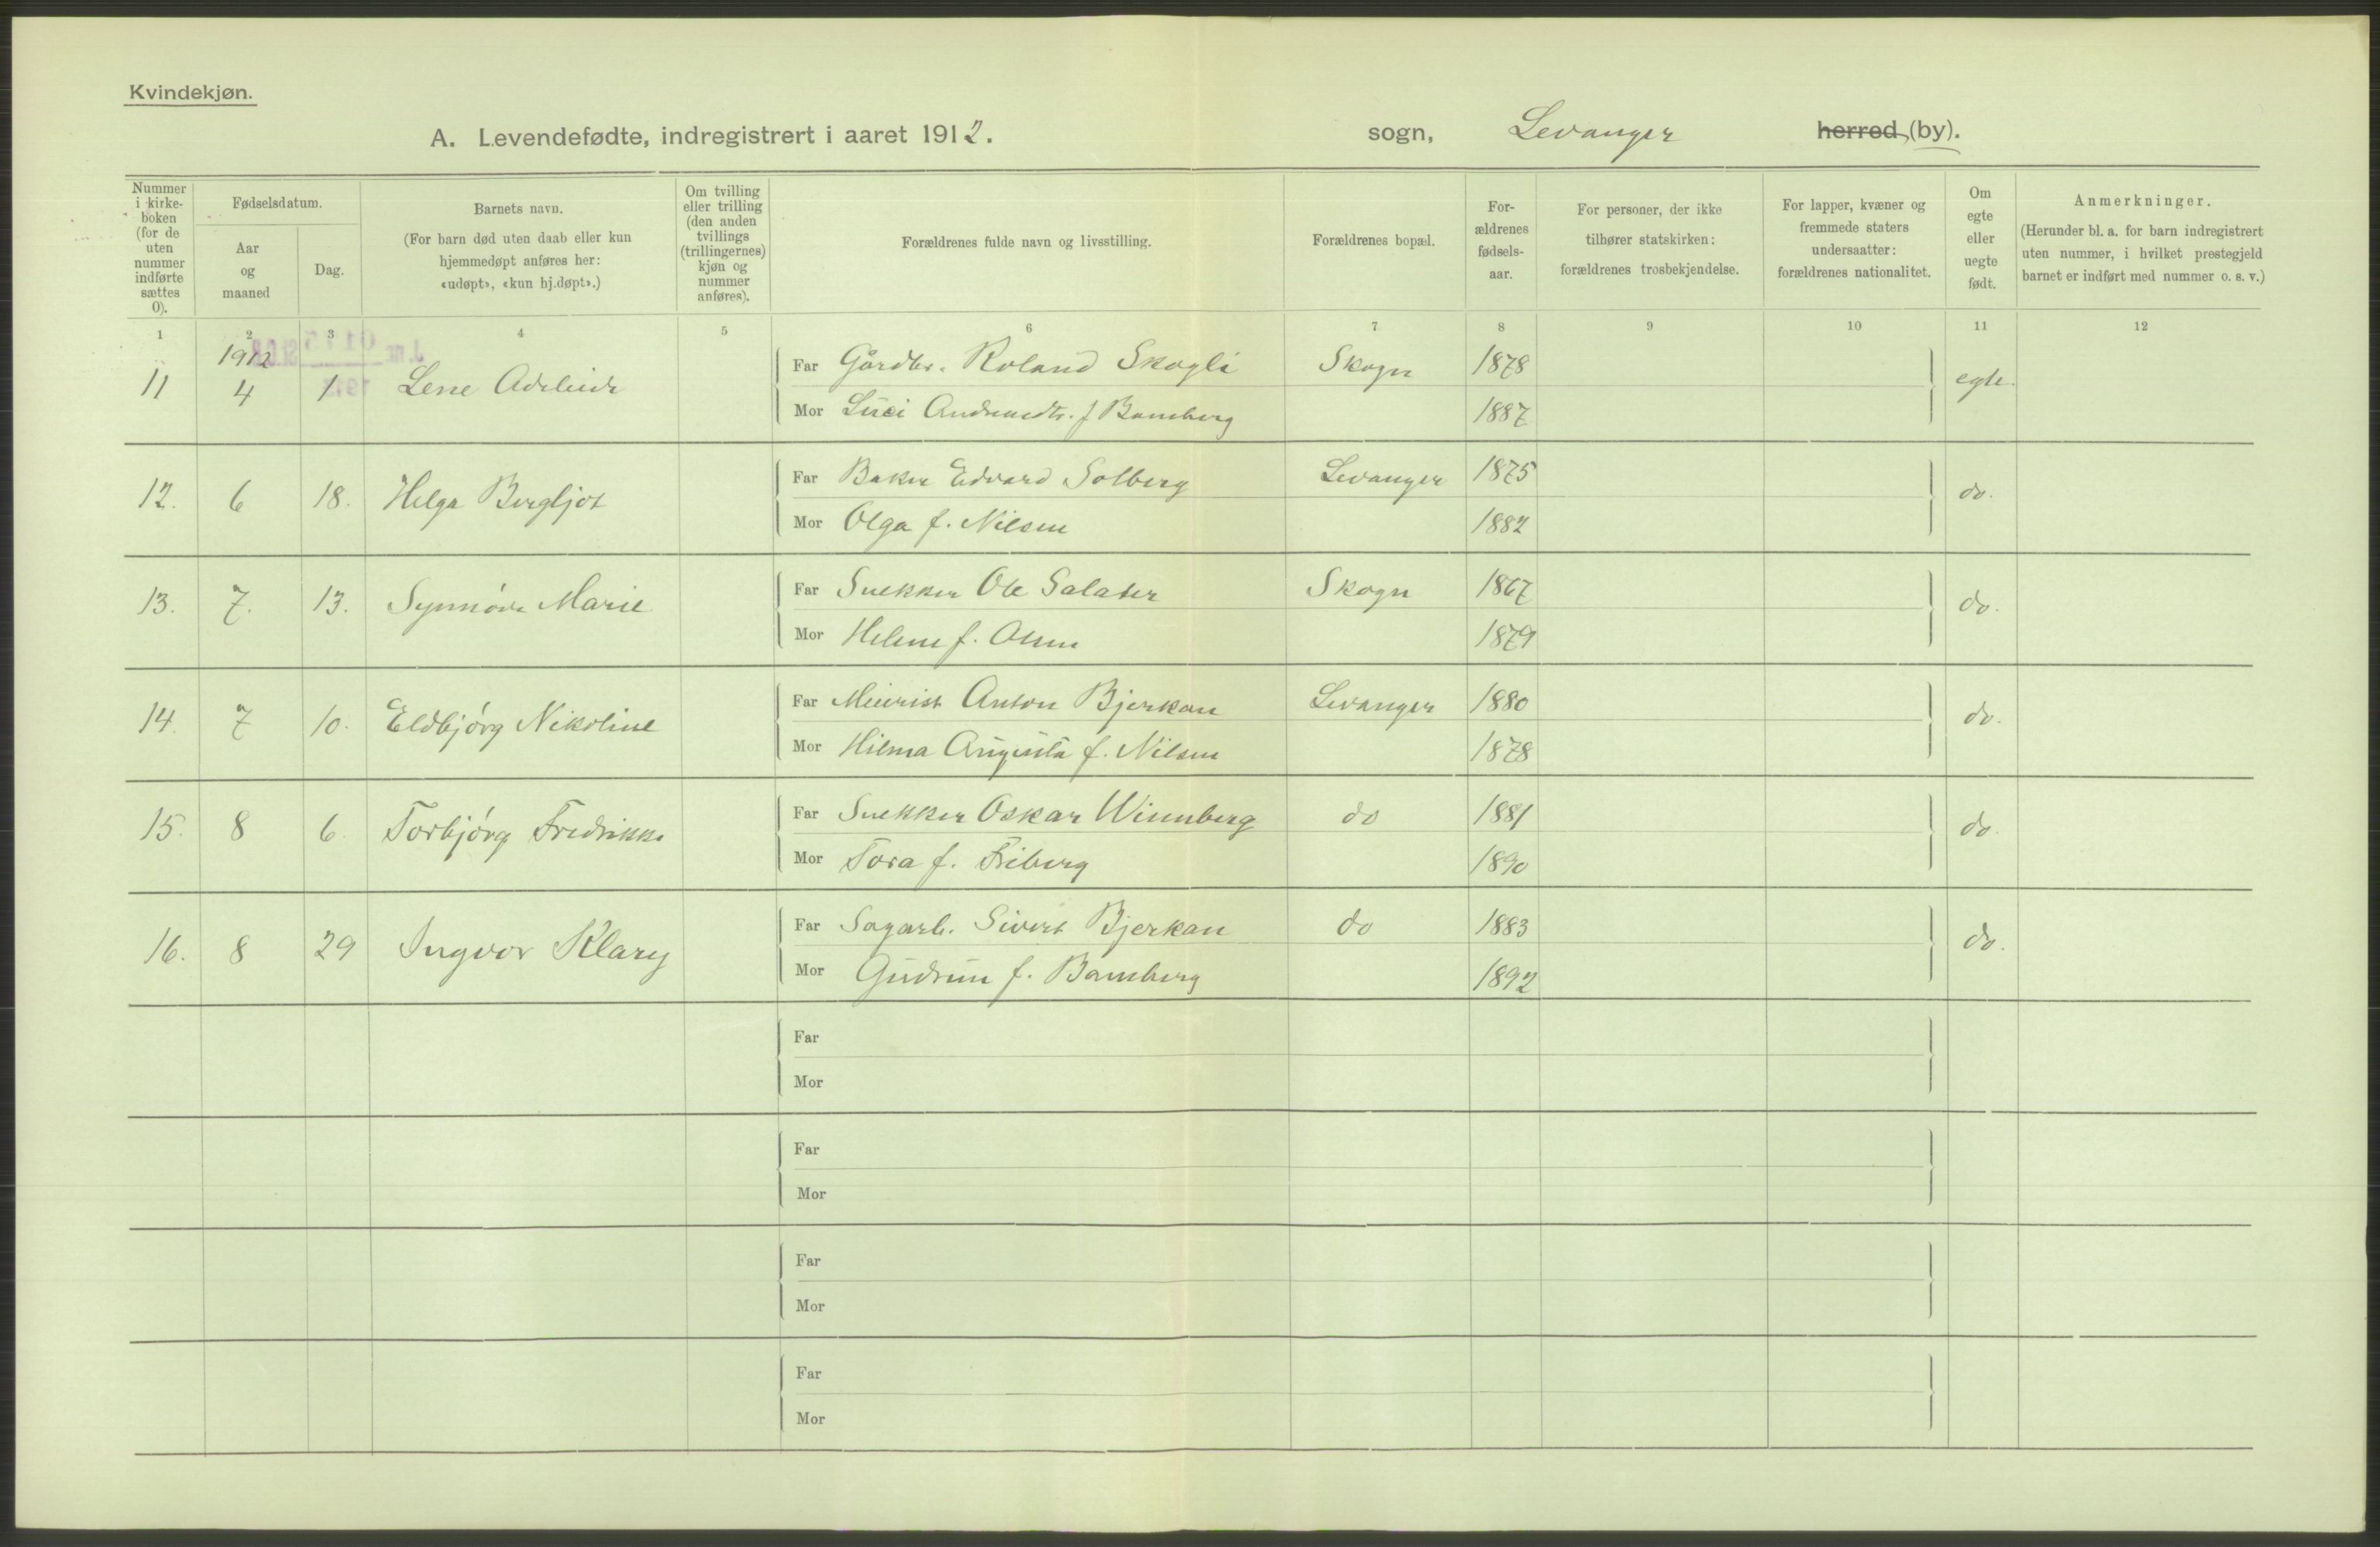 Kvindekjøn.
A. Levendefødte, indregistrert i aaret 1912. sogn, Levanger herred (by).
Nummer i kirke-boken (for de uten nummer indførte sættes 0).
Fødselsdatum.
Aar og maaned
Dag.
Barnets navn.
(For barn død uten daab eller kun hjemmedøpt anføres her: «udøpt», «kun hj.døpt».)
Om tvilling eller trilling (den anden tvillings (trillingernes) kjøn og nummer anføres).
Forældrenes fulde navn og livsstilling.
Forældrenes bopæl.
For-ældrenes fødsels-aar.
For personer, der ikke tilhører statskirken: forældrenes trosbekjendelse.
For lapper, kvæner og fremmede staters undersaatter: forældrenes nationalitet.
Om egte eller uegte født.
Anmerkninger.
(Herunder bl. a. for barn indregistrert uten nummer, i hvilket prestegjeld barnet er indført med nummer o. s. v.)
1 2 3 4 5 6 7 8 9 10 11 12
1912
11 4 1 Lene Adeleide Far Gårdbr. Roland Skogli Skogn 1878 egte.
Mor Luci f Bamberg 1887
12. 6 18. Helga Bergljot Far Baker Edvard Solberg Levanger 1875 do.
Mor Olga f. Nilsen 1882
13. 7. 13. Synnøve Marie Far Snekker Ole Salater Skogn 1867 do.
Mor Helene f. Olsen 1879
14. 7 10. Eldbjørg Nikoline Far Meierist Anton Bjerkan Levanger 1880 do.
Mor Hilma Augusta f. Nilsen 1878
15. 8 6. Torbjørg Fredrikke Far Snekker Oskar Winnberg do 1881 do.
Mor Tora f. Friberg 1890
16. 8 29 Ingvor Klary Far Sagarb. Sivert Bjerkan do 1883 do.
Mor Gudrun f. Bamberg 1892
Far
Mor
Far
Mor
Far
Mor
Far
Mor